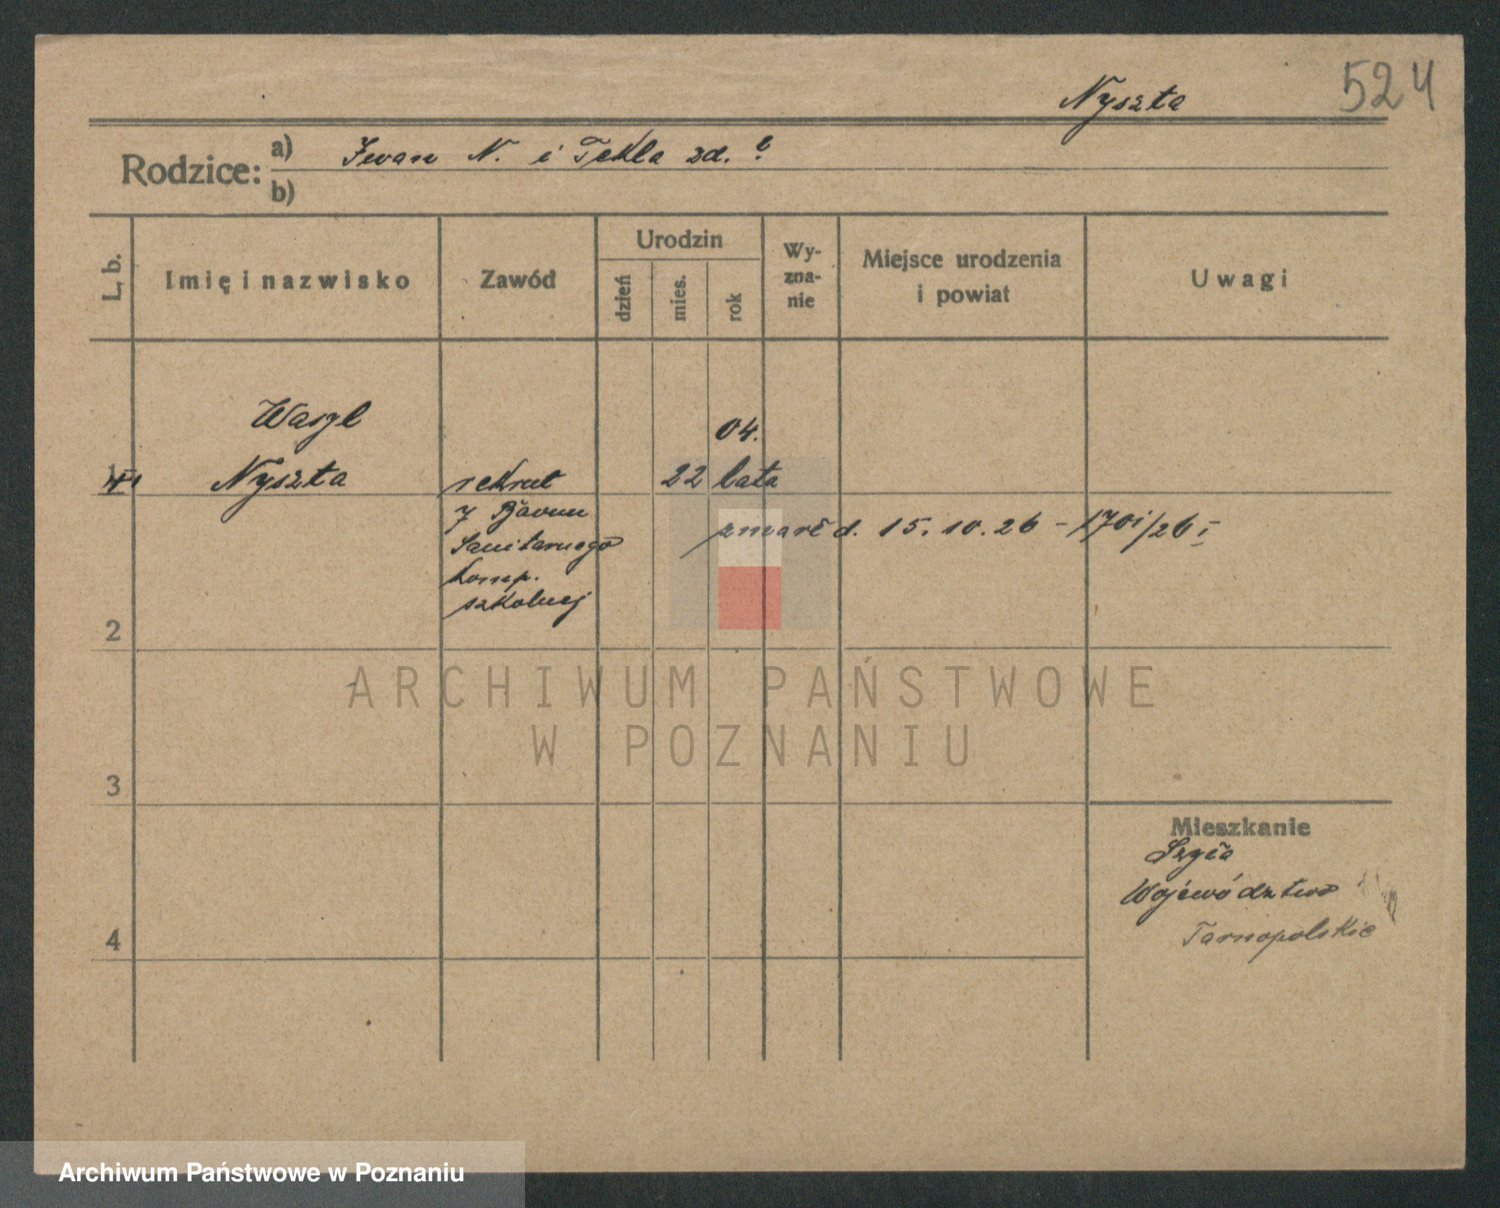 524
Nyszta
Rodzice: a) Iwan N. i Tekla zd. ?
b)
L. b.
Imię i nazwisko
Zawód
Urodzin
dzień
mies.
rok
Wy-
zna-
nie
Miejsce urodzenia
i powiat
Uwagi
Wasyl
04.
Nyszta
rekrut
22 lata
7 Baonu
Sanitarnego
Komp.
szkolnej
zmarł d. 15.10.26 - 1701/26 I
2
3
4
Mieszkanie
Województwo
Tarnopolskie
ARCHIWUM PAŃSTWOWE
W POZNANIU
Archiwum Państwowe w Poznaniu